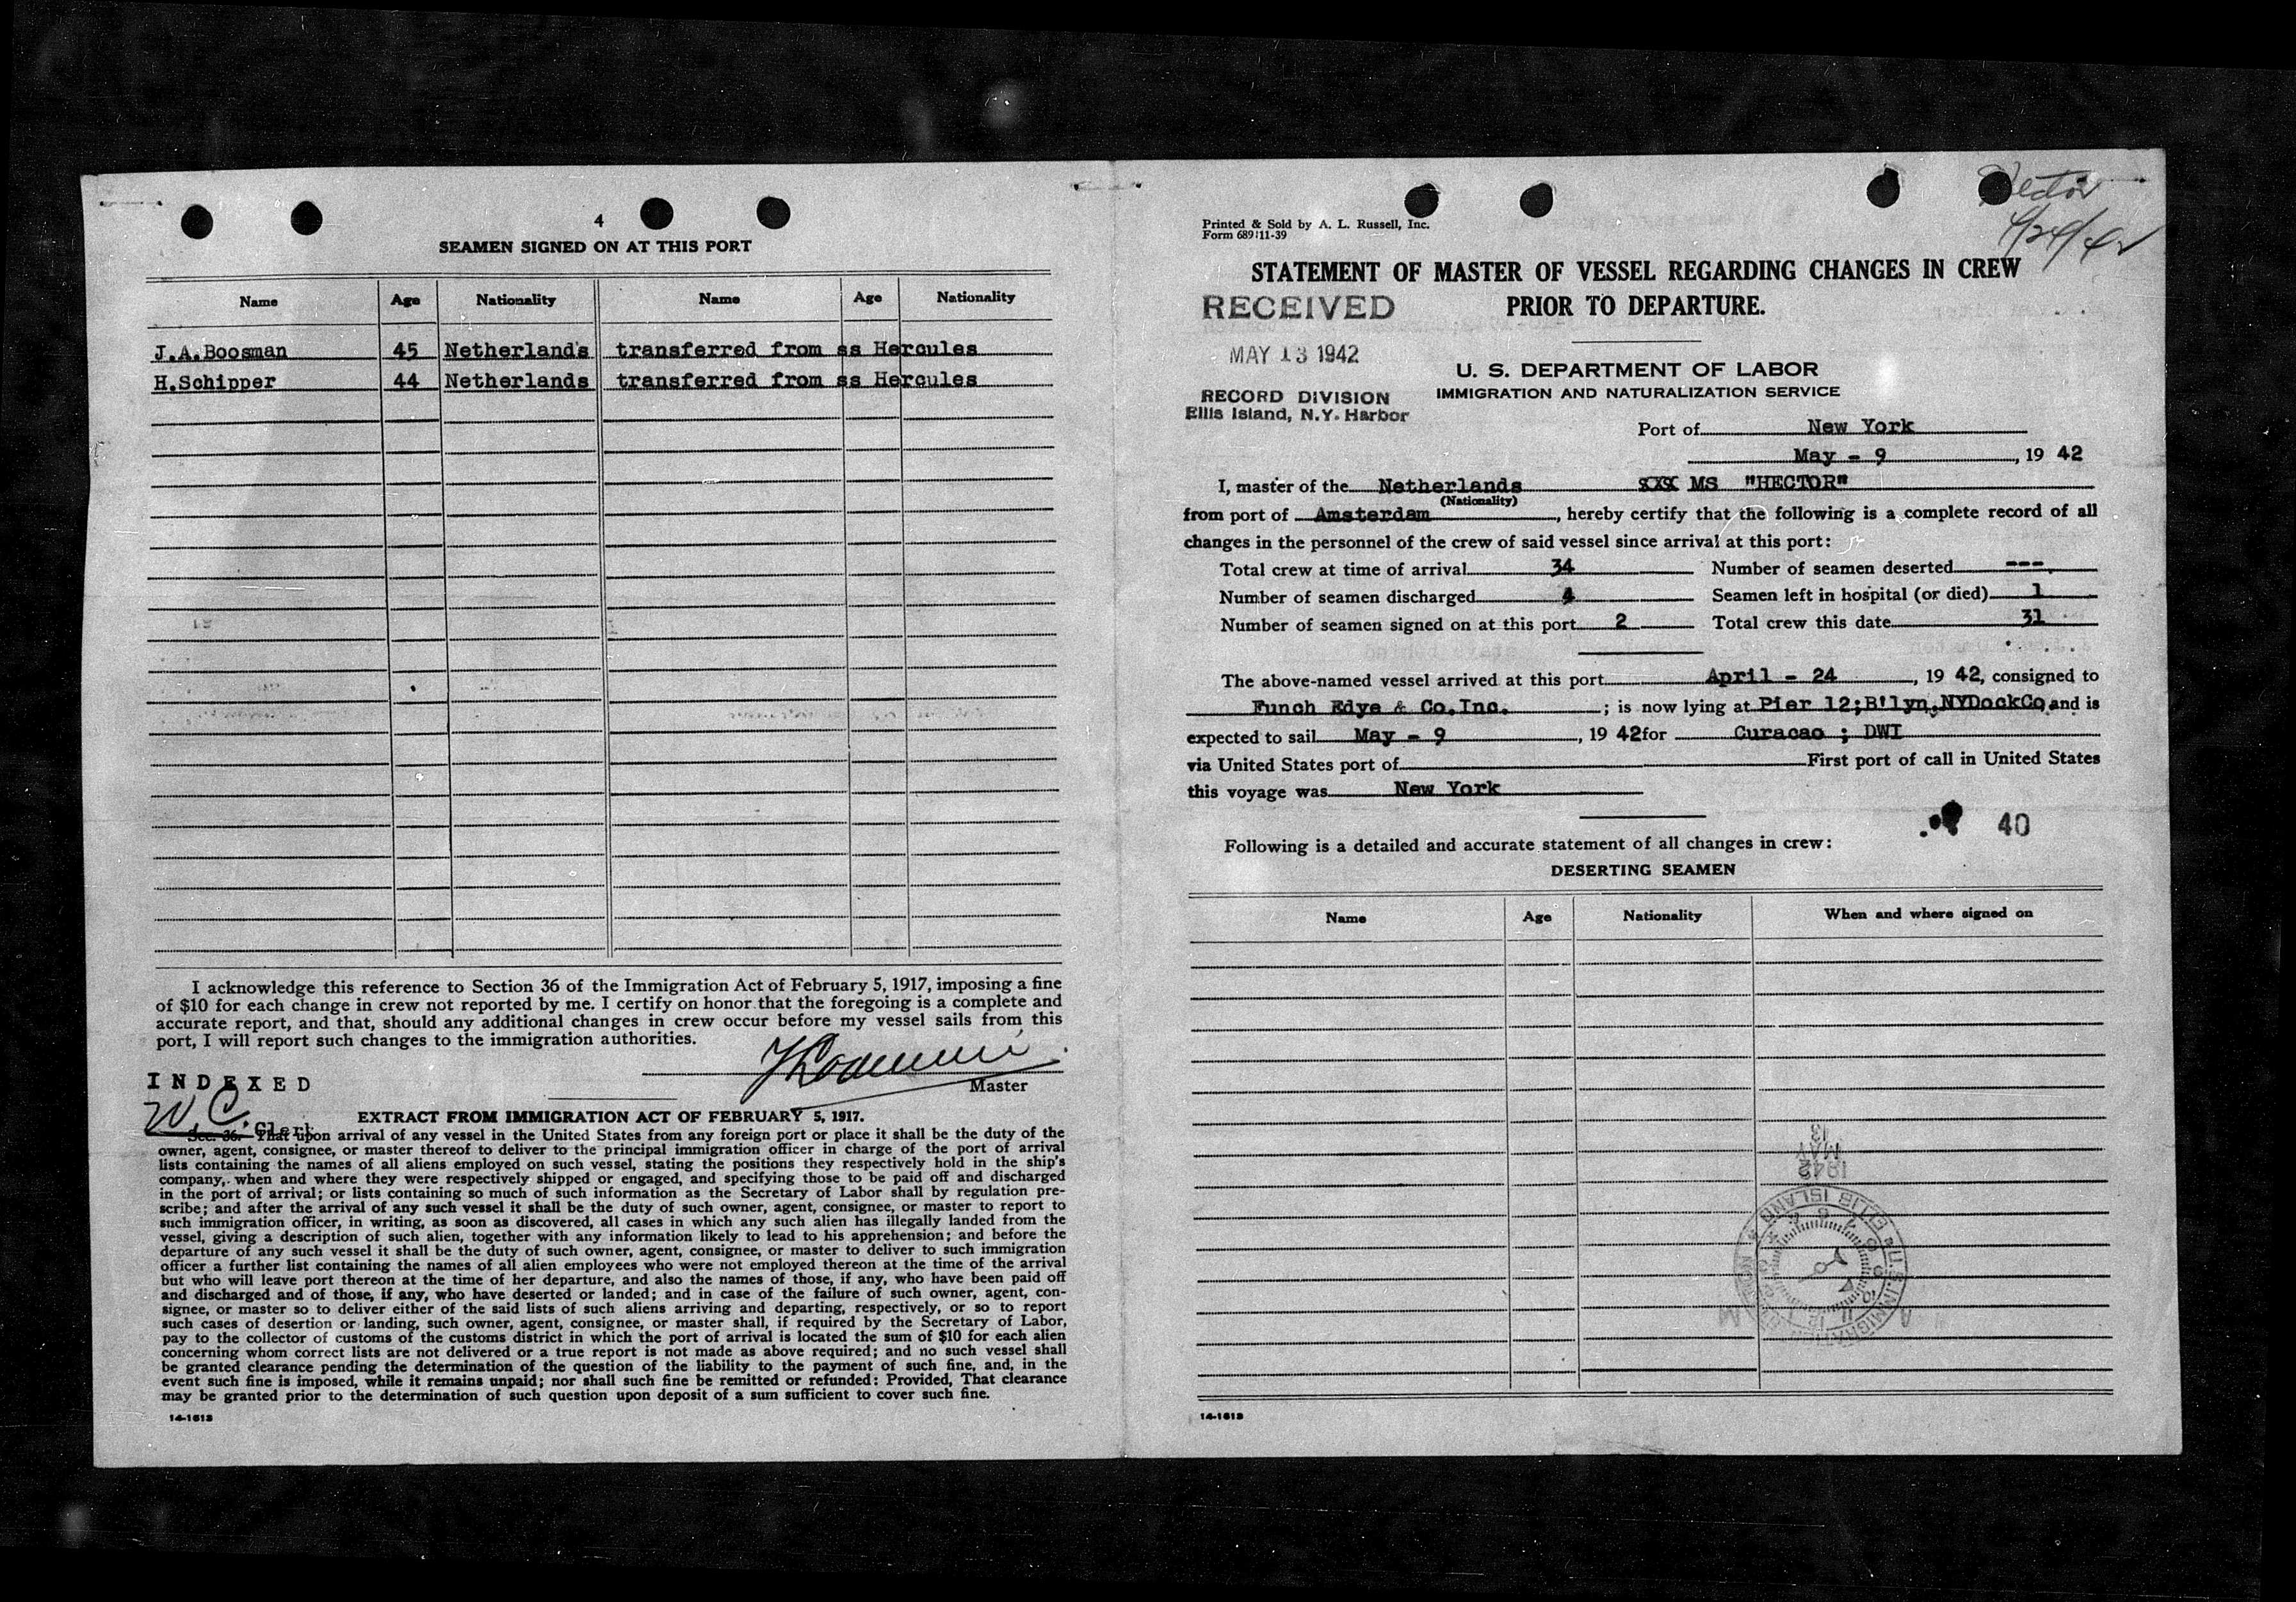 4
SEAMEN SIGNED ON AT THIS PORT
Name Age Nationality Name Age Nationality
J.A.Boosman 45 Netherlands transferred from ss Hercules
H.Schipper 44 Netherlands transferred from ss Hercules
I acknowledge this reference to Section 36 of the Immigration Act of February 5, 1917, imposing a fine
of $10 for each change in crew not reported by me. I certify on honor that the foregoing is a complete and
accurate report, and that, should any additional changes in crew occur before my vessel sails from this
port, I will report such changes to the immigration authorities.
INDEXED
Master
W C. Clerk
EXTRACT FROM IMMIGRATION ACT OF FEBRUARY 5, 1917.
Sec. 36. That upon arrival of any vessel in the United States from any foreign port or place it shall be the duty of the
owner, agent, consignee, or master thereof to deliver to the principal immigration officer in charge of the port of arrival
lists containing the names of all aliens employed on such vessel, stating the positions they respectively hold in the ship's
company, when and where they were respectively shipped or engaged, and specifying those to be paid off and discharged
in the port of arrival; or lists containing so much of such information as the Secretary of Labor shall by regulation pre-
scribe; and after the arrival of any such vessel it shall be the duty of such owner, agent, consignee, or master to report to
such immigration officer, in writing, as soon as discovered, all cases in which any such alien has illegally landed from the
vessel, giving a description of such alien, together with any information likely to lead to his apprehension; and before the
departure of any such vessel it shall be the duty of such owner, agent, consignee, or master to deliver to such immigration
officer a further list containing the names of all alien employees who were not employed thereon at the time of the arrival
but who will leave port thereon at the time of her departure, and also the names of those, if any, who have been paid off
and discharged and of those, if any, who have deserted or landed; and in case of the failure of such owner, agent, con-
signee, or master so to deliver either of the said lists of such aliens arriving and departing, respectively, or so to report
such cases of desertion or landing, such owner, agent, consignee, or master shall, if required by the Secretary of Labor,
pay to the collector of customs of the customs district in which the port of arrival is located the sum of $10 for each alien
concerning whom correct lists are not delivered or a true report is not made as above required; and no such vessel shall
be granted clearance pending the determination of the question of the liability to the payment of such fine, and, in the
event such fine is imposed, while it remains unpaid; nor shall such fine be remitted or refunded: Provided, That clearance
may be granted prior to the determination of such question upon deposit of a sum sufficient to cover such fine.
14-1613
Hector
4/24/42
Printed & Sold by A. L. Russell, Inc.
Form 689:11-39
STATEMENT OF MASTER OF VESSEL REGARDING CHANGES IN CREW
PRIOR TO DEPARTURE.
RECEIVED
MAY 13 1942
RECORD DIVISION
Ellis Island, N.Y. Harbor
U. S. DEPARTMENT OF LABOR
IMMIGRATION AND NATURALIZATION SERVICE
Port of New York
May - 9, 19 42
I, master of the Netherlands XXX MS "HECTOR"
(Nationality)
from port of Amsterdam, hereby certify that the following is a complete record of all
changes in the personnel of the crew of said vessel since arrival at this port:
Total crew at time of arrival 34 Number of seamen deserted ---
Number of seamen discharged 4 Seamen left in hospital (or died) 1
Number of seamen signed on at this port 2 Total crew this date 31
The above-named vessel arrived at this port April - 24, 19 42, consigned to
Funch Edye & Co.Inc.; is now lying at Pier 12;B'lyn.NYDockCo and is
expected to sail May - 9, 19 42 for Curacao ; DWI
via United States port of First port of call in United States
this voyage was New York
40
Following is a detailed and accurate statement of all changes in crew:
DESERTING SEAMEN
Name Age Nationality When and where signed on
MAY 13
1942
U.S. IMMIGRATION
ELLIS ISLAND
14-1613